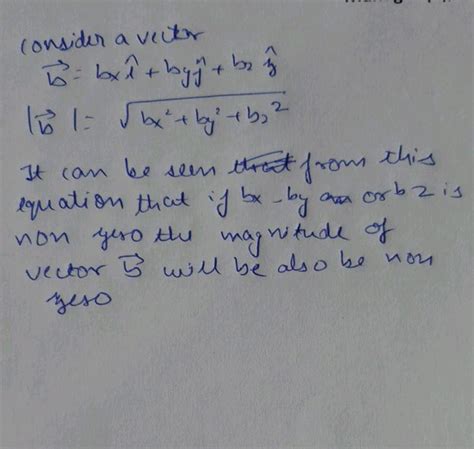 consider a vector
b⃗ = bxî + byĵ + bz ẑ
|b⃗ | = √bx² + by² + bz²
It can be seen from this
equation that if bx - by or bz is
non zero the magnitude of
vector b⃗ will be also be non
zero